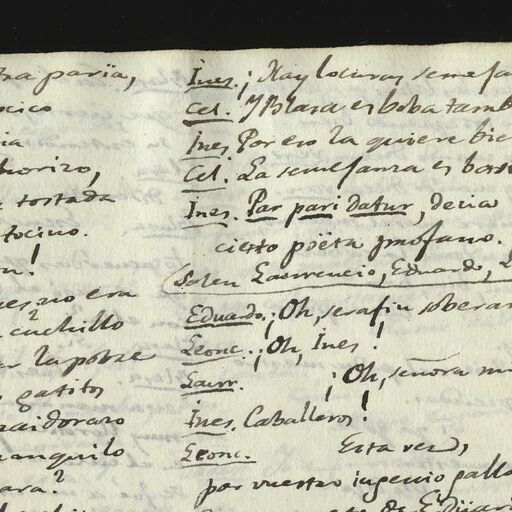 tra paria,
ocico
ia
horizo,
tostada
tocino.
on!
es no era
cuchillo?
er la pobre
gatitos
acidorazo
ranquilo
ara?
Ines. ¡Hay locuras semeja
Cel. Y Blasa es boba tamb
Ines Por eso la quiere bie
Cel. La semejanza es
Ines. Par pari datur, decia
cierto poëta profano.
(Salen Laurencio, Eduardo, L
Eduardo. ¡Oh, serafin soberan
Leonc. ¡Oh, Ines!
Laur. ¡Oh, señora mi
Ines. Caballeros!
Leonc. Esta vez,
por vuestro ingenio gallo
de Eduar